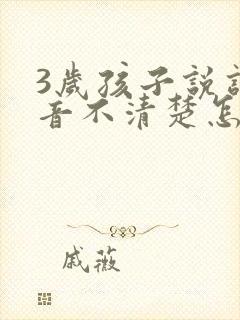 3歲孩子説
音不清楚怎
戚薇